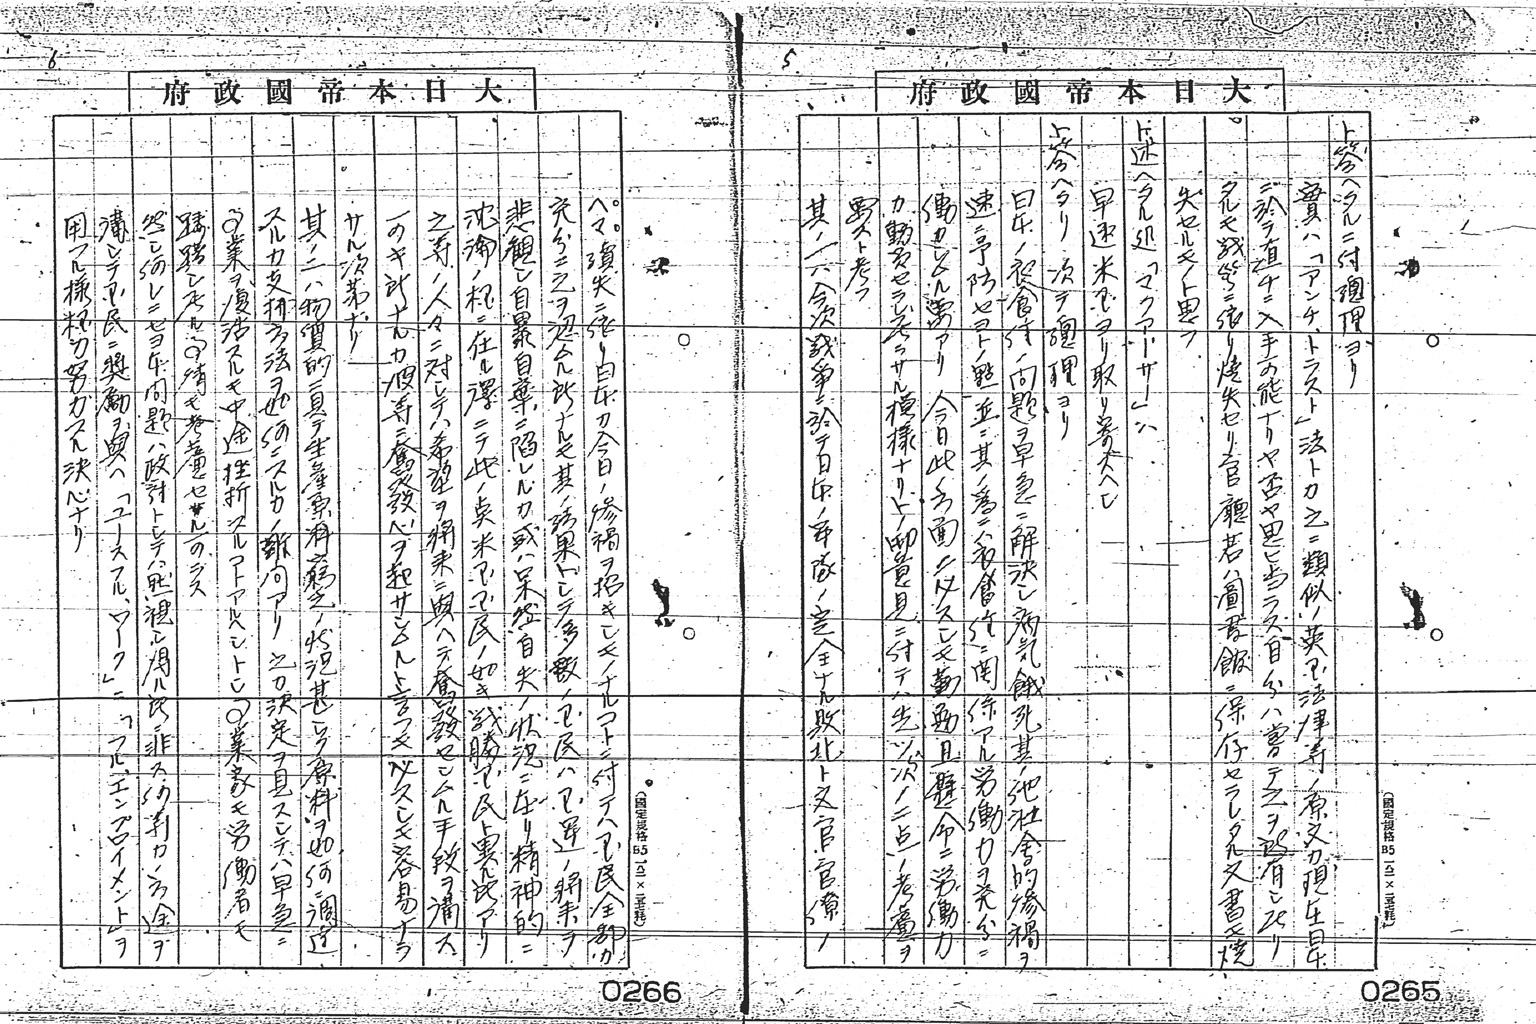 5
大日本帝國政府
ト答ヘタルニ付總理ヨリ
實ハ「アンチ、トラスト」法トカ之ニ類似ノ英国法律等ノ原文カ現在日本
ニ於テ直チニ入手可能ナリヤ否ヤ思ヒ当ラス自分ハ曽テ之ヲ所有シ居リ
タルモ戦災ニ依リ焼失セリ官廳若ハ圖書館ニ保存セラレタル文書モ焼
失セルモノト思フ
ト述ヘタル処「マクアーサー」ハ
早速米国ヨリ取リ寄スヘシ
ト答ヘタリ 次テ總理ヨリ
日本ノ衣食住ノ問題ヲ早急ニ解決シ病気、餓死其ノ他社会的惨禍ヲ
速ニ予防セヨトノ点並ニ其ノ為ニハ衣食住ニ関係アル労働力ヲ充分ニ
働カシムル要アリ 今日此ノ方面ニ必スシモ勤勉且懸命ニ労働力
カ動員セラレ居ラサル模様ナリトノ御意見ニ付テハ先ツ次ノ二点ノ考慮ヲ
要スト考フ
其ノ一ハ今次戦争ニ於テ日本ノ軍隊ノ完全ナル敗北ト文官官僚
(國定規格B5 一八二×二五七粍)
0265
6
大日本帝國政府
ヘマ、頑失ニ依リ日本カ今日ノ惨禍ヲ招キシモノナルコトニ付テハ国民全部カ
充分ニ之ヲ認ムル所ナルモ其ノ結果トシテ多数ノ国民ハ国運ノ将来ヲ
悲観シ自暴自棄ニ陥レルカ或ハ呆然自失ノ状況ニ在リ精神的ニ
沈淪ノ極ニ在ル譯ニテ此ノ点米国国民ノ如キ戦勝国民ト異ル所アリ
之等ノ人々ニ対シテハ希望ヲ将来ニ與ヘテ奮発セシムル手段ヲ講ス
ヘキ所ナルカ彼等ニ奮発心ヲ起サシムルト言フモ必スシモ容易ナラ
サル次第ナリ
其ノ二ハ物質的ニ見テ生産原料窮乏ノ状況甚シク原料ヲ如何ニ調達
スルカ支拂方法ヲ如何ニスルカノ難問アリ 之カ決定ヲ見スシテハ早急ニ
事業ヲ復活スルモ中途挫折スルコトアルヘシトシ事業家モ労働者モ
躊躇シ居ル事情モ考慮セサル可ラス
然シ何レニセヨ本問題ハ政府トシテハ黙視シ得ル所ニ非ス何等カノ方途ヲ
講シテ国民ニ奬励ヲ與ヘ「ユースフル、ワーク」ニ「フル、エンプロイメント」ヲ
用フル様極力努力スル決心ナリ
(國定規格B5 一八二×二五七粍)
0266